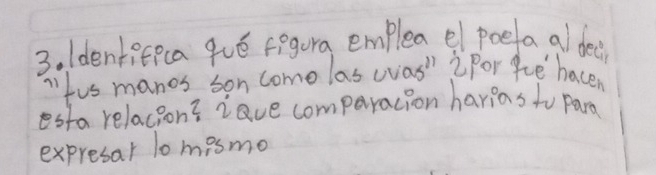 3. Identifica qué figura emplea el poeta al decir
"tus manos son como las uvas" ¿Por qué hacen
esta relacion? ¿Que comparacion harias tu para
expresar lo mismo